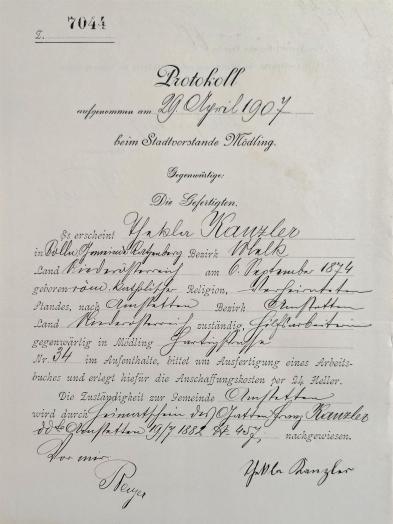 Z. 7044
Protokoll
aufgenommen am 29 April 1907
beim Stadtvorstande Mödling.
Gegenwärtige:
Die Gefertigten.
Es erscheint Thekla Kanzler
in Gemeinde Bezirk Melk
Land Niederösterreich am 6. September 1874
geboren röm. katholischer Religion, verheirateten
Standes, nach Amstetten Bezirk Amstetten
Land Niederösterreich zuständig, Hilfsarbeiterin
gegenwärtig in Mödling
Nr. 34 im Aufenthalte, bittet um Ausfertigung eines Arbeits-
buches und erlegt hiefür die Anschaffungskosten per 24 Heller.
Die Zuständigkeit zur Gemeinde Amstetten
wird durch Heimatschein des Gatten Franz Kanzler
ddo Amstetten 19/7 1882 457 nachgewiesen.
Vor mir:
Thekla Kanzler